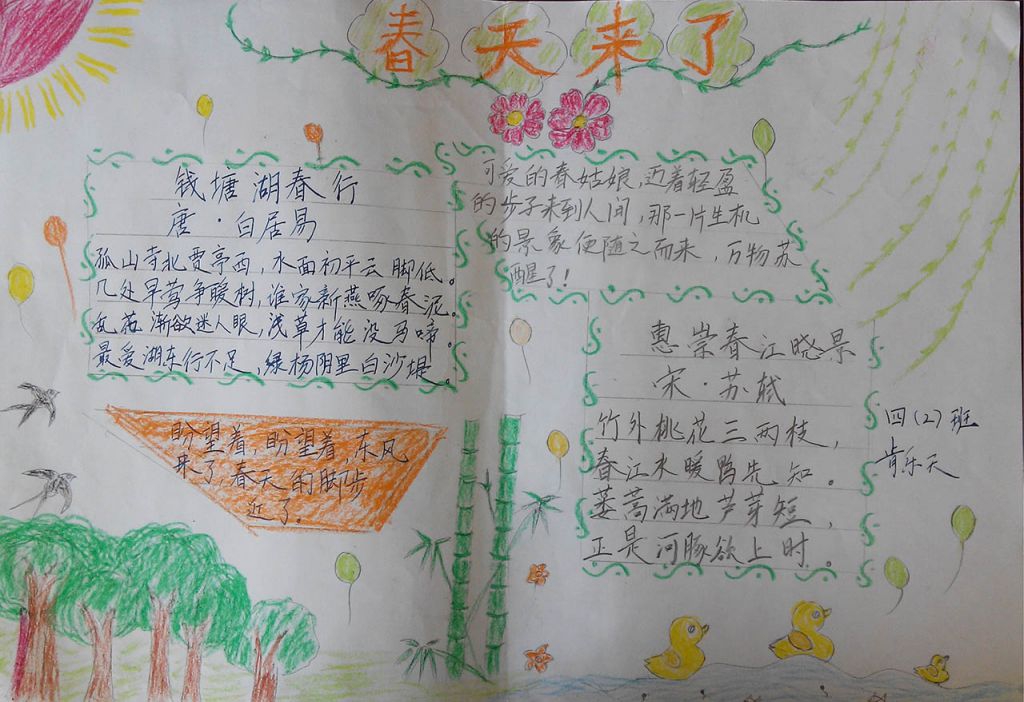 春天来了
钱塘湖春行
唐·白居易
孤山寺北贾亭西，水面初平云脚低。
几处早莺争暖树，谁家新燕啄春泥。
乱花渐欲迷人眼，浅草才能没马啼。
最爱湖东行不足，绿杨阴里白沙堤。
可爱的春姑娘，迈着轻盈
的步子来到人间，那一片生机
的景象便随之而来，万物苏
醒了！
盼望着，盼望着，东风
来了，春天的脚步
近了。
惠崇春江晓景
宋·苏轼
竹外桃花三两枝，
春江水暖鸭先知。
蒌蒿满地芦芽短，
正是河豚欲上时。
四（2）班
肯乐天